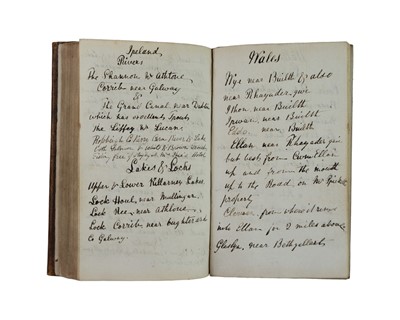 Ireland
Rivers
The Shannon nr Athlone,
Corrib near Galway
&
The Grand Canal, near Dublin
which has excellent
The Liffey nr Lucan
River & Lake
both
fishing free
Lakes & Locks
Upper & Lower Killarney Lakes.
Lock Houl, near Mullingar,
Lock Ree, near Athlone,
Lock Corrib near Oughterard
Co Galway.
Wales
Wye near Builth & also
near Rhayader, give
Ithon, near Builth
Irwan, near Builth
near Builth
Ellan near Rhayader give
but best from Cwm Ellan
up and from the mouth
up to the Road on Mr
property
from where it runs
into Ellan for 2 miles above
Glaslyn, near Bethgellart